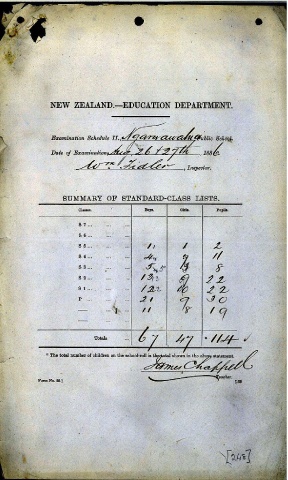 NEW ZEALAND.—EDUCATION DEPARTMENT.
Examination Schedule II. Ngaruawahia Public School.
Date of Examination, Aug 26 & 27th 1886
Wm Fidler, Inspector.
SUMMARY OF STANDARD-CLASS LISTS.
Classes. Boys. Girls. Pupils.
S 7
S 6
S 5 1 1 2
S 4 4 7 11
S 3 5 8
S 2 13 9 22
S 1 12 10 22
P 21 9 30
11 8 19
Totals 67 47 114
* The total number of children on the school-roll is the total shown in the above statement.
James Chappell
Teacher.
188
[248]